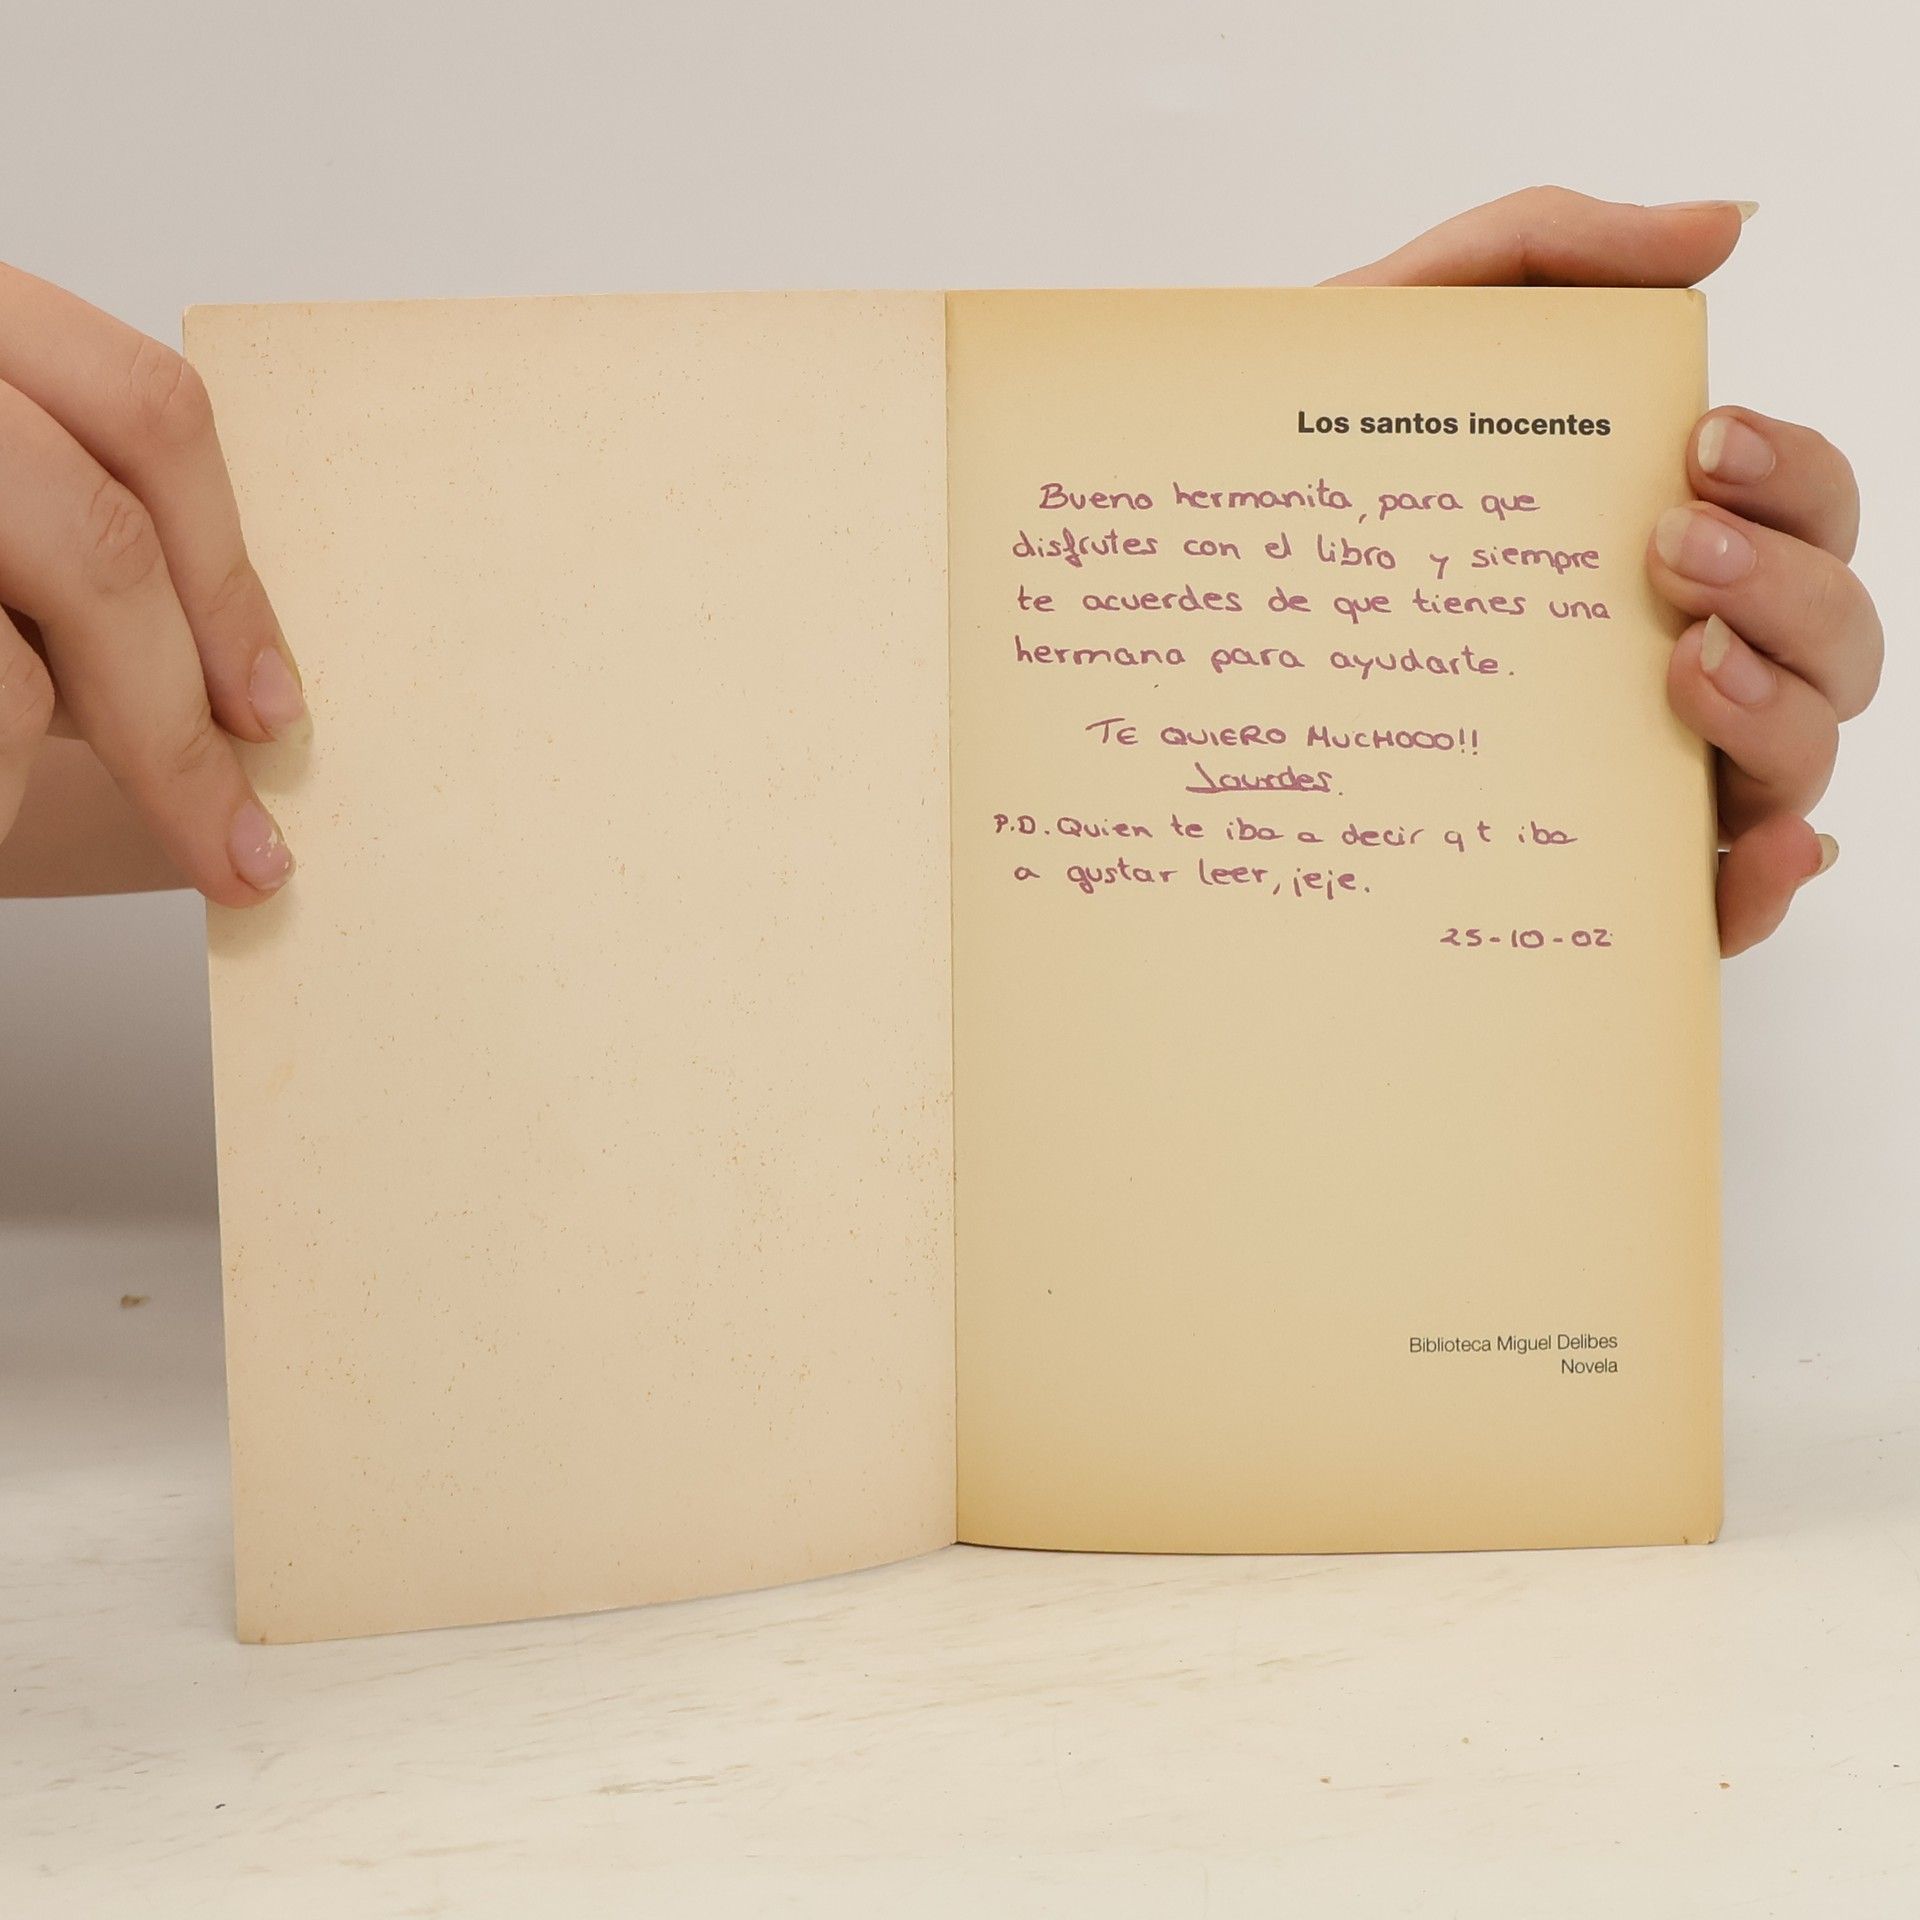 Los santos inocentes
Bueno hermanita, para que
disfrutes con el libro y siempre
te acuerdes de que tienes una
hermana para ayudarte.
TE QUIERO MUCHOOO!!
Lourdes.
P.D. Quien te iba a decir q t iba
a gustar leer, jeje.
25-10-02
Biblioteca Miguel Delibes
Novela